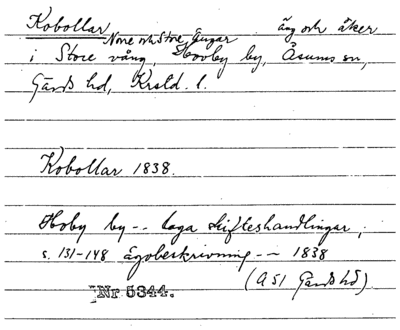 Kobollar äng och åker
Norre och Store Ängar
i Store vång, Hovby by, Åsums sn,
Gärds hd, Krstd. l.
Kobollar 1838.
Hoby by -- Laga skifteshandlingar,
s. 131-148 Ägobeskrivning -- 1838
(A 51 Gärds hd)
Nr 5344.